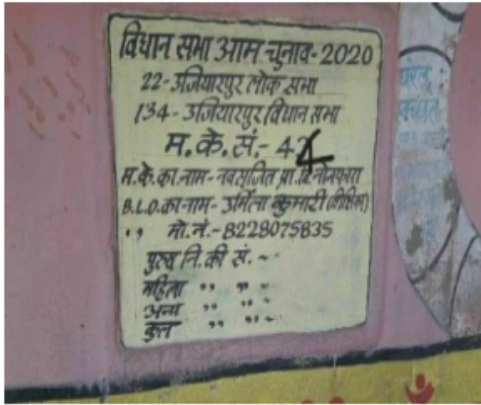 विधान सभा आम चुनाव-2020
22-उजियारपुर लोक सभा
134-उजियारपुर विधान सभा
म.के.सं.-424
म.के.का नाम-नवसृजित प्रा.वि.नोनफारा
B.L.O.का नाम-उर्मिला कुमारी (शिक्षिका)
,, मो.नं.-8228075835
पुरुष नि.की सं.~
महिला ,, ,, ~
अन्य ,, ,, ~
कुल ,, ,, ~